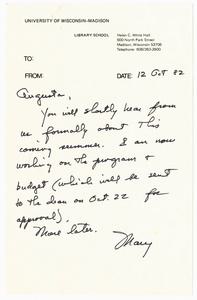 UNIVERSITY OF WISCONSIN-MADISON
LIBRARY SCHOOL
Helen C. White Hall
600 North Park Street
Madison, Wisconsin 53706
Telephone: 608/263-2900
TO:
FROM:
DATE: 12 Oct 82
Augusta,
You will shortly hear from
us formally about this
coming summer. I am now
working on the program &
budget (which will be sent
to the dean on Oct. 22 for
approval).
More later.
Mary